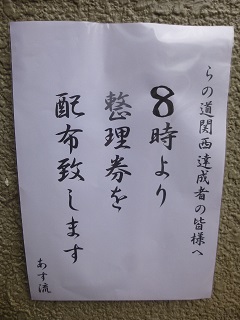 らの道関西達成者の皆様へ
8時より
整理券を
配布致します
あす流